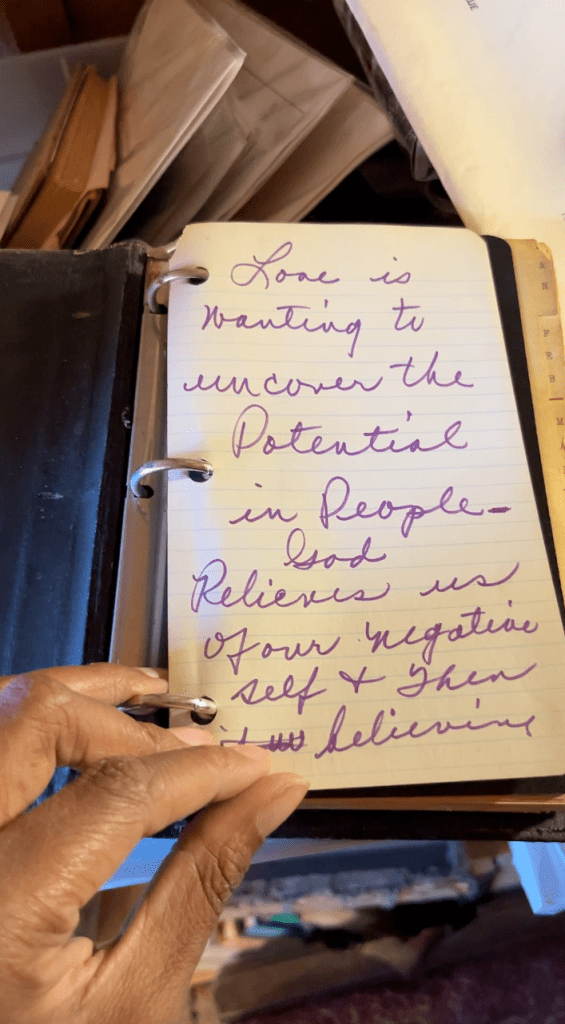 Love is
Wanting to
uncover the
Potential
in People-
God
Relieves us
Of our negative
self & Then
believing
UE
A
N
F
E
B
M
A